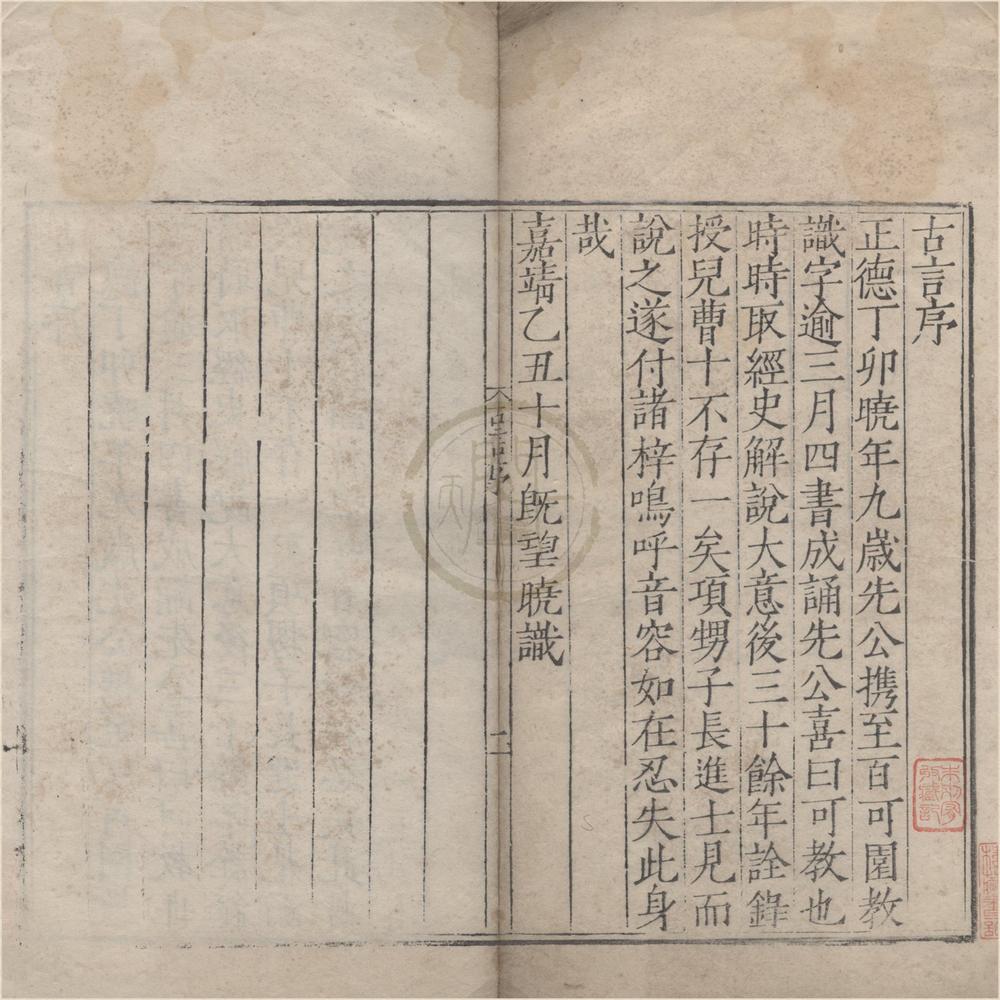 古言序
正德丁卯曉年九歲先公携至百可園教
識字逾三月四書成誦先公喜曰可教也
時時取經史解說大意後三十餘年詮錄
授兒曹十不存一矣項甥子長進士見而
說之遂付諸梓嗚呼音容如在忍失此身
哉
嘉靖乙丑十月旣望曉識
古言序
二